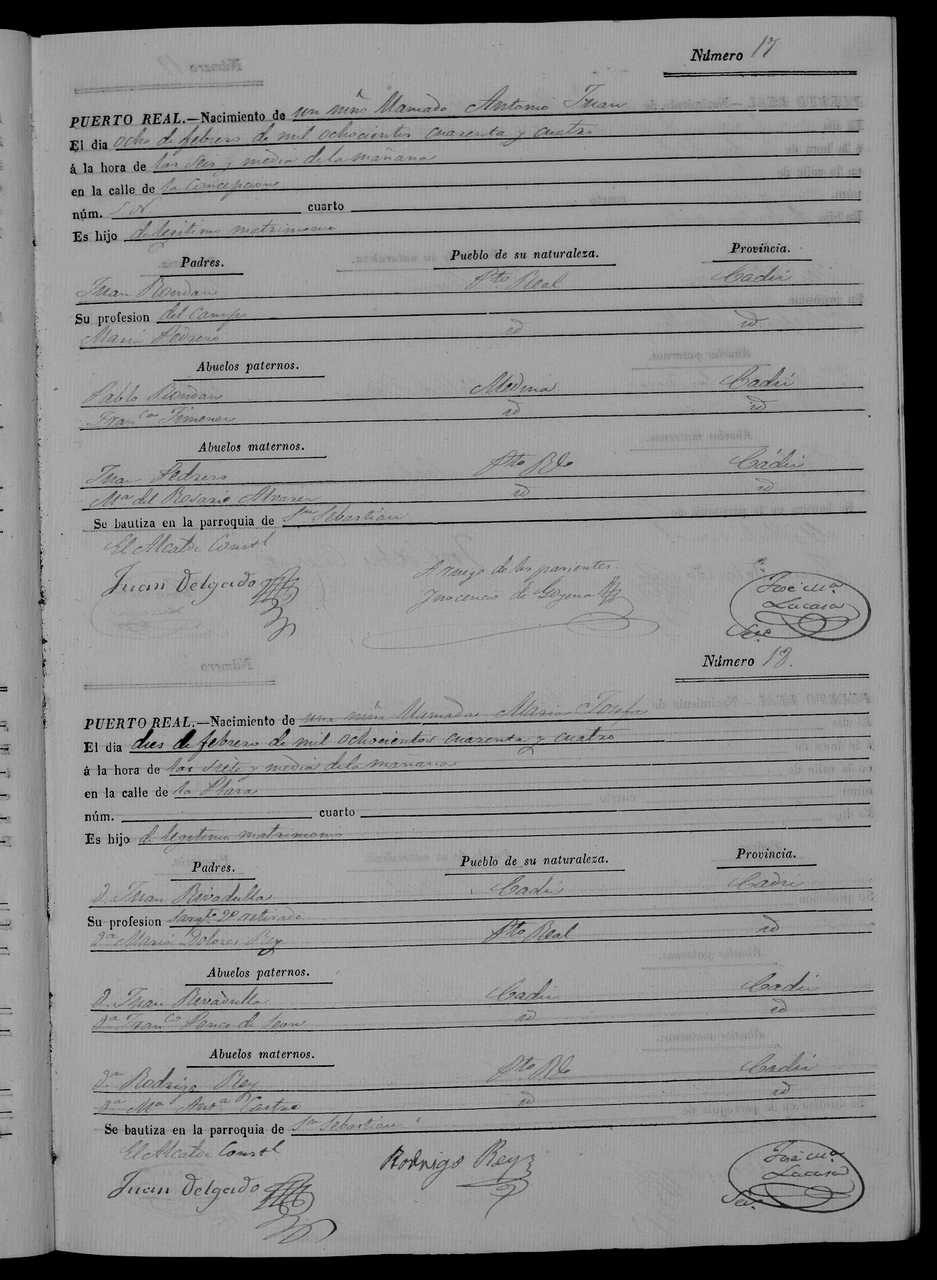 Número 17
PUERTO REAL.—Nacimiento de un niño llamado Antonio Juan
El dia ocho de febrero de mil ochocientos cuarenta y cuatro
á la hora de las seis y media de la mañana
en la calle de la Concepcion
núm. cuarto
Es hijo de legitimo matrimonio
Padres. Pueblo de su naturaleza. Provincia.
Juan Rondan Pto Real Cadiz
Su profesion del campo
Maria Pedrero id id
Abuelos paternos.
Pablo Rondan Medina Cadiz
Franca Jimenez id id
Abuelos maternos.
Juan Pedrero Pto Rl Cádiz
Ma del Rosario Alvarez id id
Se bautiza en la parroquia de Sn Sebastian
El Alcalde Constl
A ruego de los parientes
Juan Delgado Inocencio de Goyena José Ma Lucasa
Srio
Número 18.
PUERTO REAL.—Nacimiento de una niña llamada Maria Josefa
El dia dies de febrero de mil ochocientos cuarenta y cuatro
á la hora de las siete y media de la mañana
en la calle de la Plaza
núm. cuarto
Es hijo de legitimo matrimonio
Padres. Pueblo de su naturaleza. Provincia.
D. Juan Rivadulla Cadiz Cadiz
Su profesion Sargto 2º retirado
Da Maria Dolores Rey Pto Real id
Abuelos paternos.
D. Juan Rivadulla Cadiz Cadiz
Da Franca Ponce de Leon id id
Abuelos maternos.
Dn Rodrigo Rey Pto Rl Cadiz
Da Ma Anta Castro id id
Se bautiza en la parroquia de Sn Sebastian
El Alcalde Constl
Juan Delgado Rodrigo Rey José Ma Lucasa
Srio